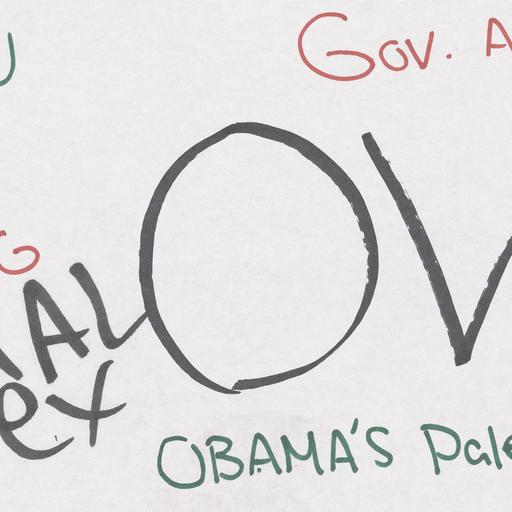 U
Gov. A
OV
G
IAL
ex
OBAMA'S Pale